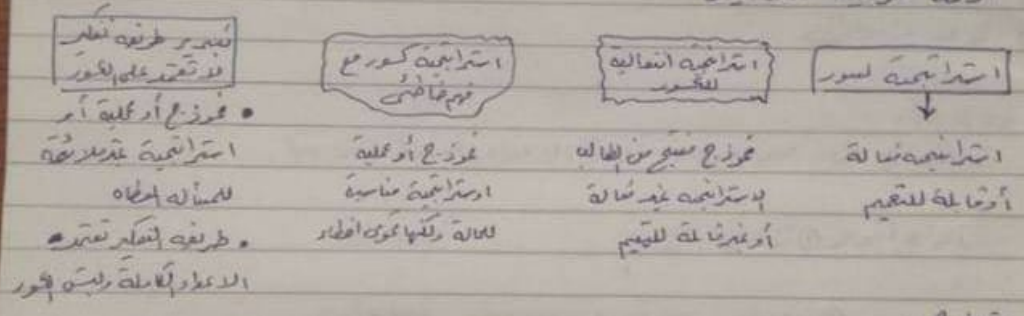 استراتيجية كسور
استراتيجية فعالة
أو قابلة للتعميم
استراتيجية انتقالية
للكسور
نموذج منتج من الطالب
لاستراتيجية غير فعالة
أو غير قابلة للتعميم
استراتيجية كسور مع
فهم خاطئ
نموذج أو عملية
او ستراتيجية مناسبة
للحالة ولكنها تحوي اخطاء
تبرير طريقه تفكير
لا تعتمد على الكسور
• نموذج أو عملية أو
استراتيجية غير ملائمة
للمسأله المعطاه
• طريقه التفكير تعتمد
الاعداد الكاملة وليس الكسور